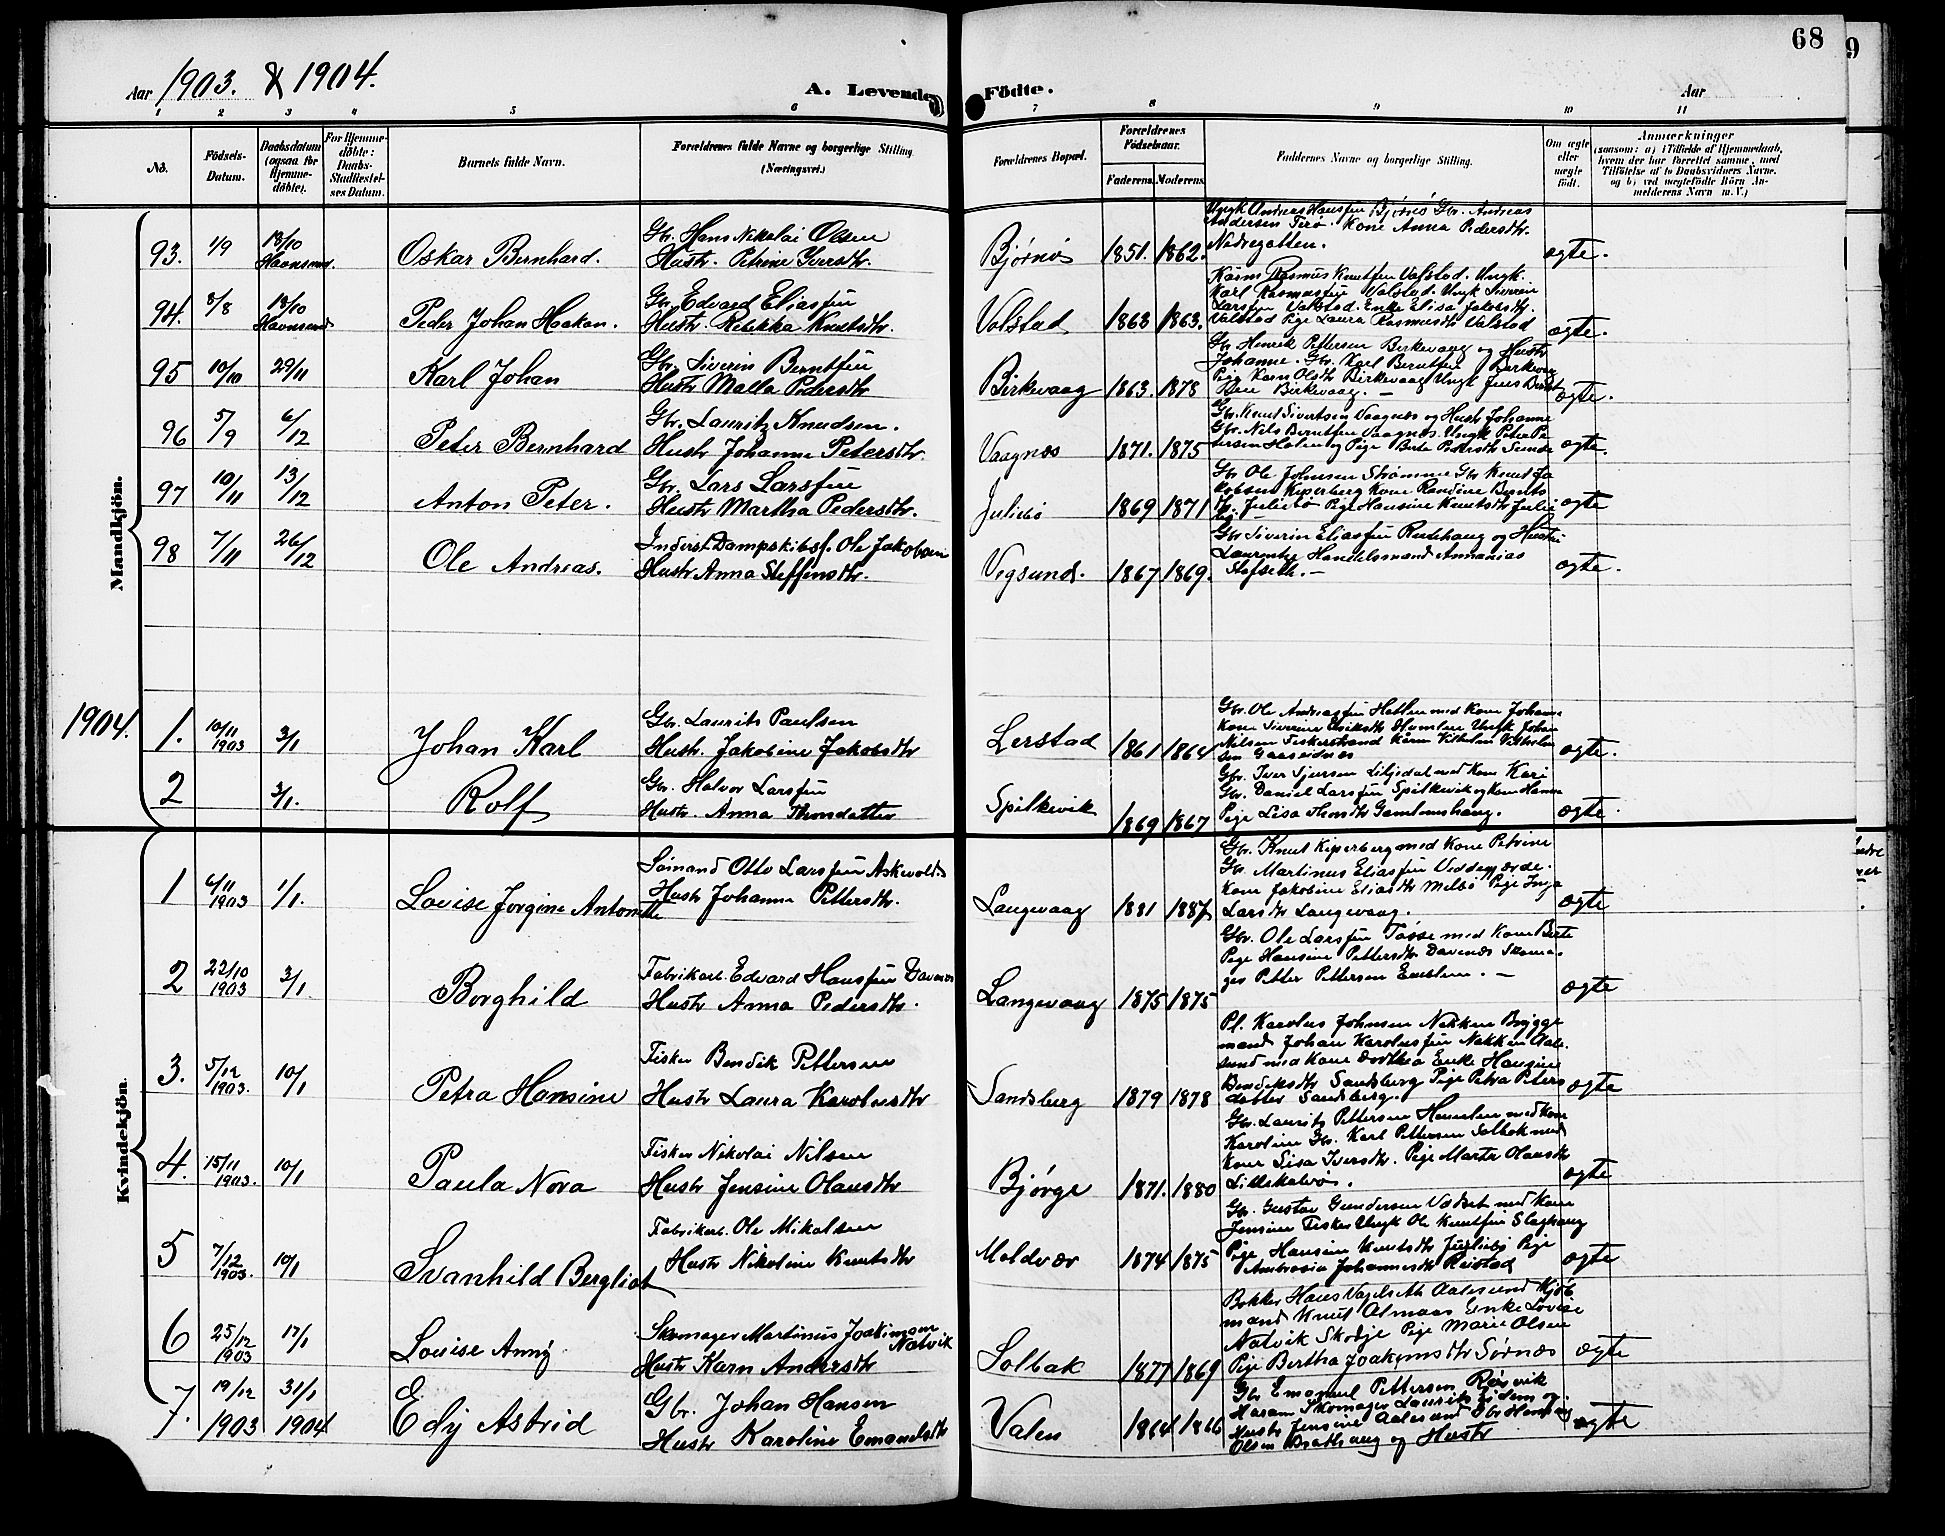 68
9
Aar 1903. & 1904.
A. Levende Födte.
Aar
1 2 3 4 5 6 7 8 9 10 11
No.
Födsels-Datum.
Daabsdatum (ogsaa for Hjemmedöbte).
For Hjemmedöbte: Daabs-Stadfæstelses Datum.
Barnets fulde Navn.
Forældrenes fulde Navne og borgerlige Stilling (Næringsvei.)
Forældrenes Bopæl.
Forældrenes Födselsaar.
Faderens. Moderens.
Faddernes Navne og borgerlige Stilling.
Om ægte eller uægte født.
Anmærkninger
(saasom: a) i Tilfælde af Hjemmedaab, hvem der har forrettet samme, med Tilföielse af to Daabsvidners Navne. og b) ved uægtefödte Börn Anmelderens Navn m. V.)
Mandkjön.
93. 1/9 18/10 Havnsund Oskar Bernhard. Gbr. Hans Nikolai Olsen
Hustr. Petrine Iversdtr. Bjørnø 1851. 1862. Ungk Andreas Hansen Bjørnø Gbr. Andreas
Andersen Terø. Kone Anna Pedersdtr.
Nedregotten. ægte.
94. 8/8 18/10 Havnsund Peder Johan Haakon. Gbr. Edvard Eliassen
Hustr. Rebekka Knutsdtr. Valstad 1863 1863. Kaarm Rasmus Knutsen Valstad. Ungk.
Karl Rasmussen Valstad. Ungk Siverin
Larssen Valstad. Enke Elisa Jakobsdtr.
Valstad Pige Laura Rasmusdtr Valstad ægte.
95 10/10 29/11 Karl Johan Gbr. Siverin Berntsen
Hustr Malla Pedersdtr Birkevaag 1863. 1878 Gbr Henrik Pettersen Birkevaag og Hustr
Johanne. Gbr. Karl Berntsen Birkevaag
Pige Karn Olsdtr Birkevaag Ungk Jens Bernt
sen Birkevaag. — ægte.
96 5/9 6/12 Peter Bernhard Gbr. Lauritz Knudsen.
Hustr Johanne Petersdtr. Vaagnæs 1871. 1875 Gbr. Knut Sivertsen Vaagnæs og Hustr Johanne
Gbr. Nils Berntsen Vaagnæs. Ungk Peter Pe
tersen Holen og Pige Berte Pedersdtr Sunde ægte.
97 10/11 13/12 Anton Peter. Gbr. Lars Larssen
Hustr Martha Pedersdtr. Juliebø 1869 1871 Gbr Ole Johnsen Strømme Gbr Knut Ja
kobsen Kiperberg Kone Randine Bernts
dtr. Juliebø Pige Hansine Knutsdtr Julie
bø. — ægte
98 7/11 26/12 Ole Andreas. Inderst Dampskibsf. Ole Jakobsen
Hustr Anna Steffensdtr. Vegsund. 1867 1869. Gbr Siverin Eliassen Rudehaug og Hustr
Laurentse Handelsmand Annanias
Stofseth. — ægte.
1904. 1. 10/11 1903 3/1 Johan Karl Gbr. Laurits Paulsen
Hustr. Jakobine Jakobsdtr Lerstad 1861 1864 Gbr. Ole Andreassen Hatlen med Kone Johanne
Kone Siverine Eriksdtr Humlen Ungk Johan
Nilsen Fiskerstrand Kaarm Vilhelm Vilhelm
sen Gaaseidnæs ægte.
2 3/1. Rolf Gbr. Halvor Larssen
Hustr. Anna Thronsdatter Spilkevik 1869 1867 Gbr. Iver Sjursen Liljedal med Kone Kari
Gbr. Daniel Larssen Spilkevik og Kone Hanna
Pige Lisa Thronsdtr Gamlemshaug. ægte.
Kvindekjön.
1 6/11 1903 1/1. Lovise Jørgine Antonette Sømand Otto Larssen Askevold
Hustr Johanne Pettersdtr. Langevaag 1881 1887 Gbr. Knut Kiperberg med Kone Petrine
Gbr. Martinus Eliassen Veddegjærde.
Kone Jakobine Eliasdtr Molbø Pige Inga
Larsdtr Langevaag. ægte
2 22/10 1903 3/1 Borghild Fabrikarb. Edvard Hanssen Davenæs
Hustr Anna Pedersdtr. Langevaag 1875 1875 Gbr. Ole Larssen Tosse med Kone Berte
Pige Hansine Pettersdtr Davenæs Skoma
ger Petter Pettersen Emblem. — ægte
3. 5/12 1903. 10/1 Petra Hansine Fisker Bendik Pettersen
Hustr Laura Karolusdtr Sandsberg 1879 1878 Pl. Karolus Johnsen Nakken Brygge
mand Johan Karolussen Nakken Aale
sund med Kone Dorthea Enke Hansine
Bendiksdtr Sandsberg Pige Petra Peters
datter Sandsberg. ægte
4. 15/11 1903. 10/1 Paula Nora Fisker Nikolai Nilsen
Hustr Jensine Olausdtr Bjørge 1871. 1880 Gbr. Laurits Pettersen Humlen med Kone
Karoline Gbr. Karl Pettersen Solbak med
Kone Lisa Iversdtr. Pige Marte Olausdtr
Lilleskalvø. ægte
5 7/12 1903. 10/1 Svanhild Bergliot Fabrikarb. Ole Mikalsen
Hustr Nikoline Knutsdtr Moldvær 1874 1875 Gbr. Gustav Gundersen Vadset med Kone
Jensine Fisker Ungk Ole Knutsen Slaghaug
Pige Hansine Knutsdtr Juliebø Pige
Ambrosia Johannesdtr Reistad ægte
6 25/12 1903 17/1 Louise Anny Skomager Martinus Joakimsen Natvik
Hustr Karn Andersdtr Solbak 1877 1869 Bøkker Hans Vegsæth Aalesund Kjøb
mand Knut Almaas Enke Lovise
Natvik Skodje Pige Marie Olsen
Pige Bertha Joakimsdtr Sørnæs ægte
7. 19/12 1903 31/1 1904 Edy Astrid Gbr. Johan Hansen
Hustr Karoline Emanuelsdtr Valen 1864 1866 Gbr Emanuel Pettersen Røsvik
Haram Skomager Laurits Eidem og
Hustr Jensine Aalesund Gbr Hans
Olsen Bratthaug og Hustr ægte